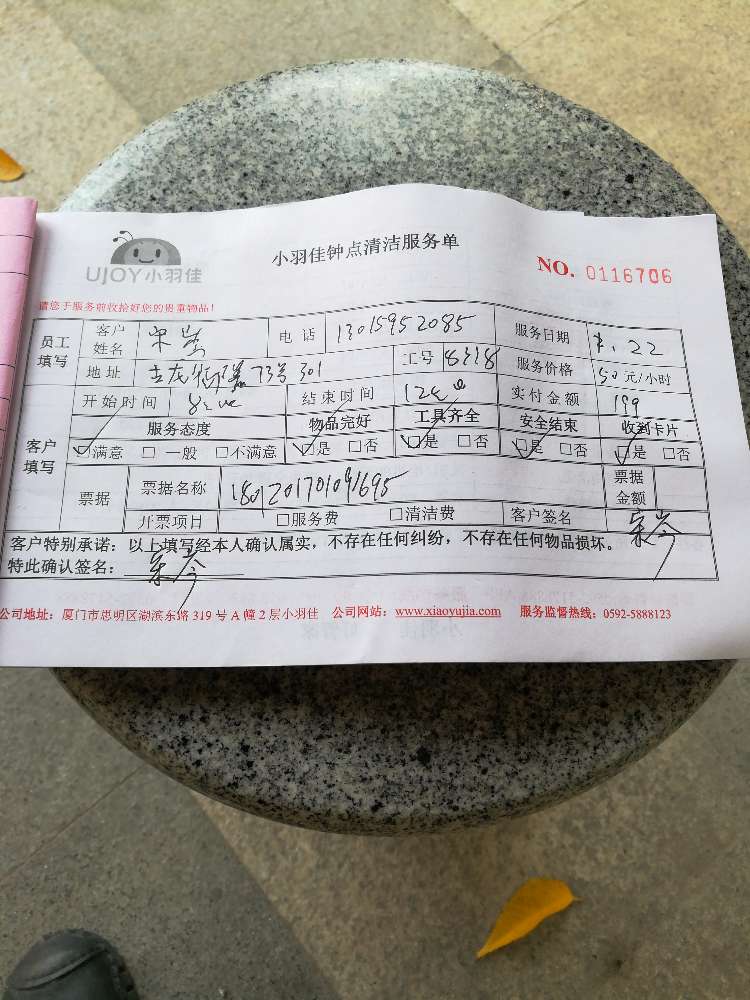 UJOY小羽佳
小羽佳钟点清洁服务单
NO. 0116706
请您于服务前收拾好您的贵重物品！
员工填写 客户姓名 宋 电话 13015952085 服务日期 22
地址 73号301 工号 8318 服务价格 50元/小时
开始时间 结束时间 实付金额 199
客户填写 服务态度 物品完好 工具齐全 安全结束 收到卡片
☑满意 □一般 □不满意 ☑是 □否 ☑是 □否 ☑是 □否 ☑是 □否
票据 票据名称 票据金额
开票项目 □服务费 □清洁费 客户签名 宋岑
客户特别承诺：以上填写经本人确认属实，不存在任何纠纷，不存在任何物品损坏。
特此确认签名： 宋岑
公司地址：厦门市思明区湖滨东路 319 号 A 幢 2 层小羽佳 公司网站：www.xiaoyujia.com 服务监督热线：0592-5888123